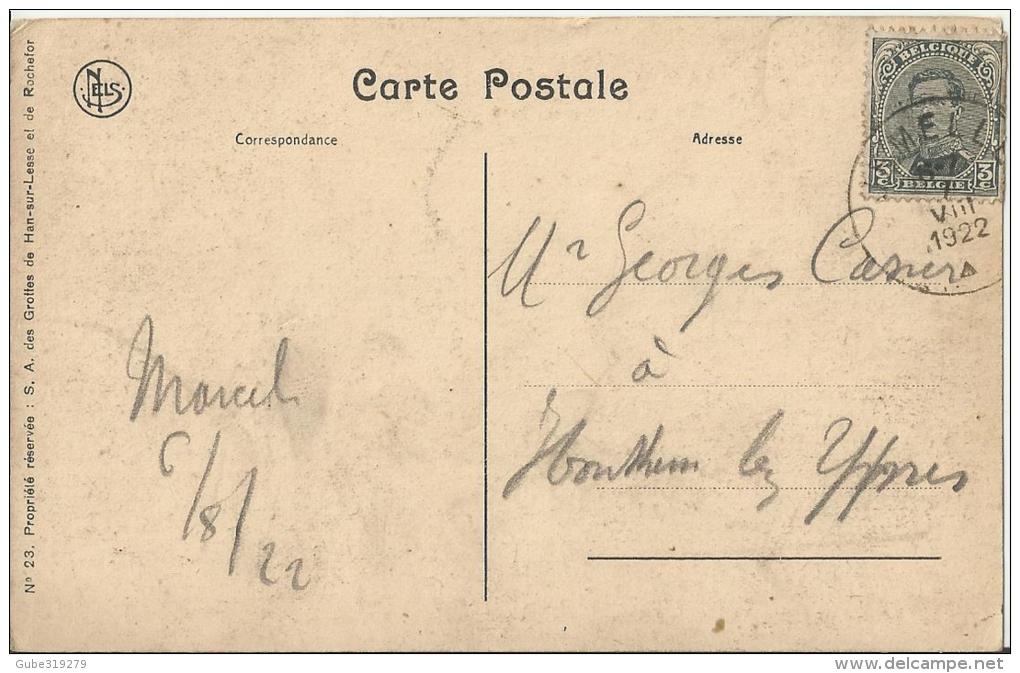 NELS
Carte Postale
Correspondance
Adresse
Nº 23. Propriété réservée : S. A. des Grottes de Han-sur-Lesse et de Rochefor
BELGIQUE
3 c 3 c
BELGIE
MELLE
VIII
1922
Mr Georges Casier
à
Houthem lez Yppres
Marcel
6/8/22
Gube319279
www.delcampe.net